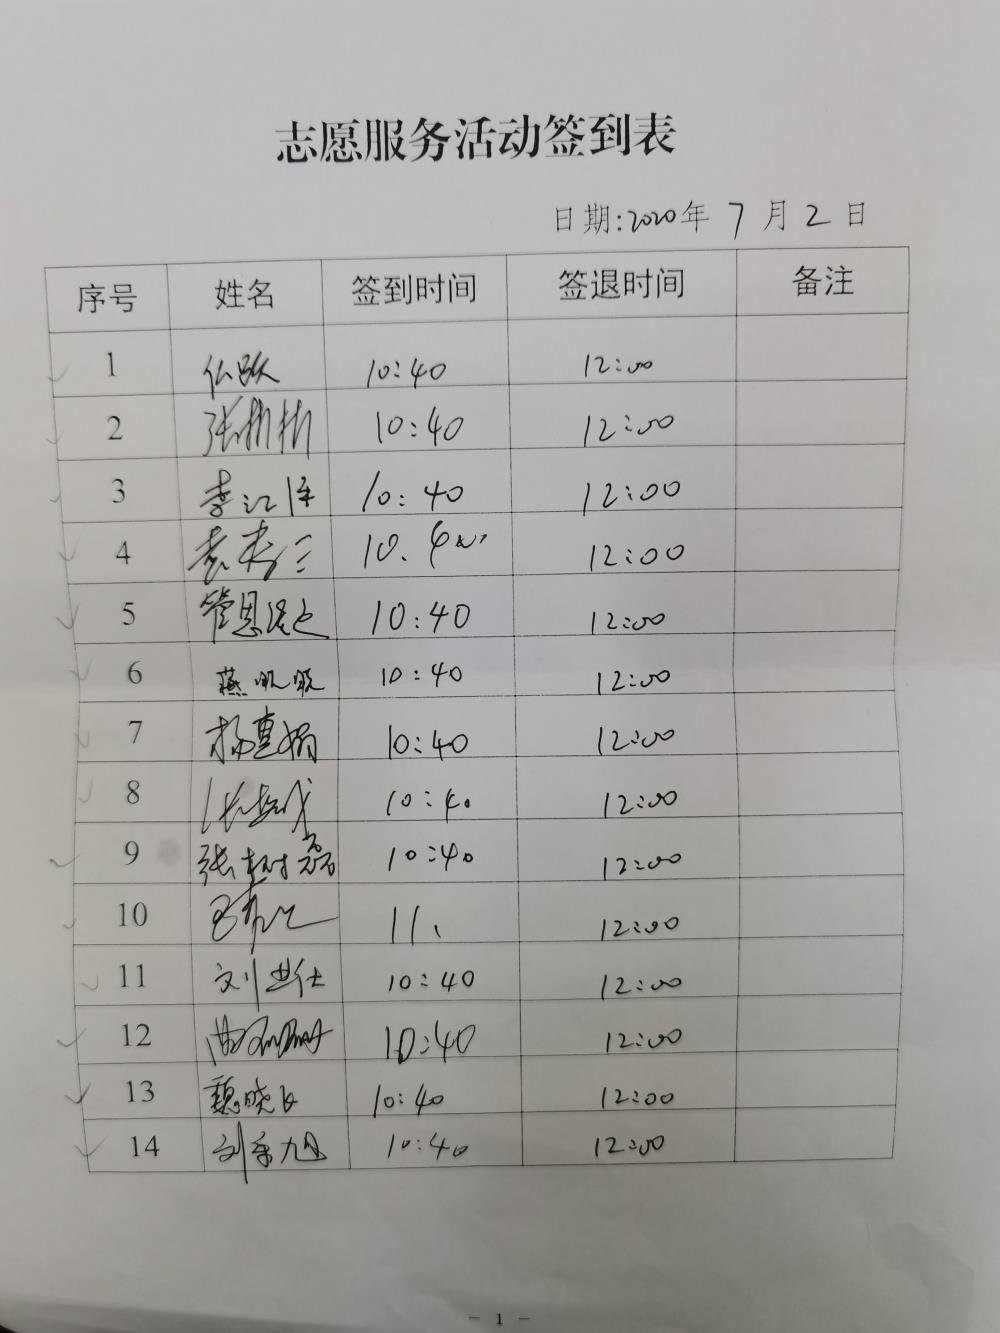 志愿服务活动签到表
日期:2020年 7 月 2 日
序号 姓名 签到时间 签退时间 备注
1 10:40 12:00
2 张彬彬 10:40 12:00
3 李江 10:40 12:00
4 10. 12:00
5 管恩 10:40 12:00
6 燕 10:40 12:00
7 杨惠娟 10:40 12:00
8 10:40 12:00
9 张树磊 10:40 12:00
10 11、 12:00
11 刘世仕 10:40 12:00
12 10:40 12:00
13 魏晓 10:40 12:00
14 刘 旭 10:40 12:00
- 1 -